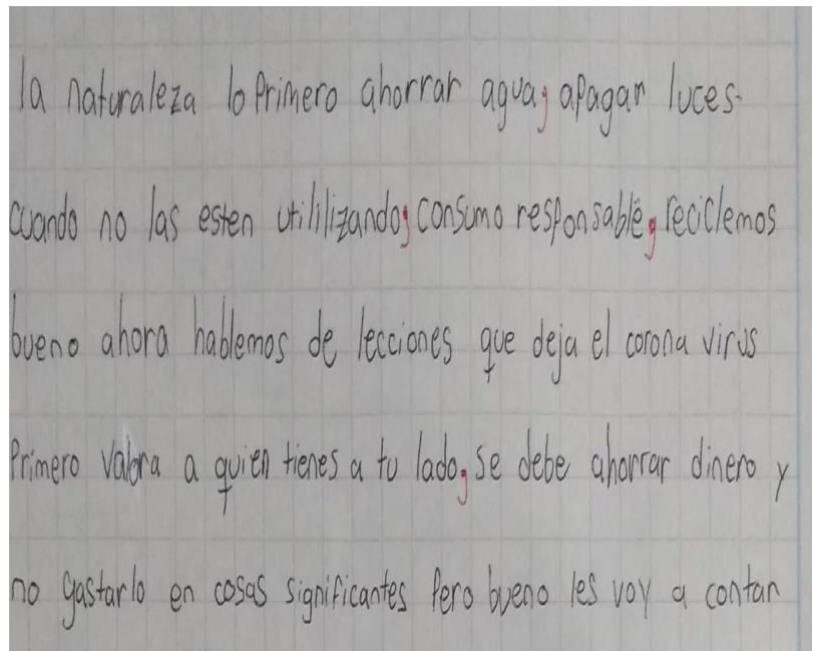 la naturaleza lo Primero ahorrar agua, apagar luces.
cuando no las esten utililizando, consumo responsable, reciclemos
bueno ahora hablemos de lecciones que deja el corona virus
Primero valora a quien tienes a tu lado, se debe ahorrar dinero y
no gastarlo en cosas significantes Pero bueno les voy a contar